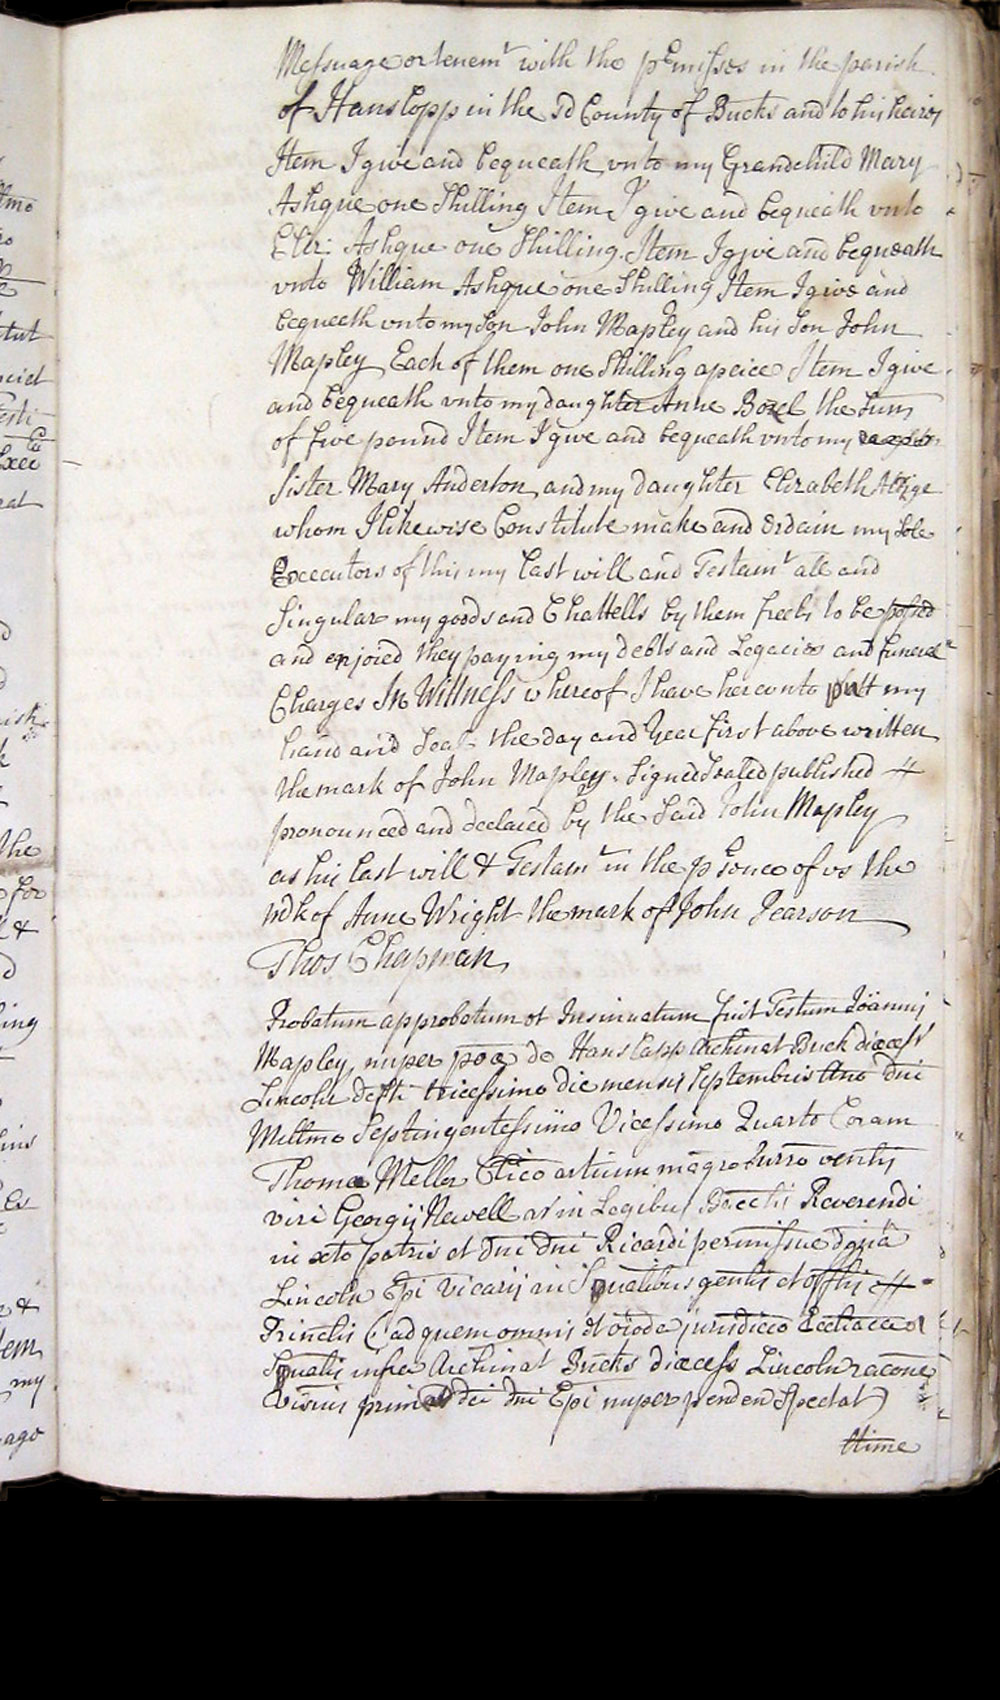 Messuage or tenemt with the pemisses in the parish
of Hanslopp in the sd County of Bucks and to his heires
Item I give and bequeath vnto my Grandchild Mary
Ashque one Shilling Item I give and bequeath vnto
Eliz: Ashque one Shilling. Item I give and bequeath
vnto William Ashque one Shilling Item I give and
bequeath vnto my Son John Mapley and his Son John
Mapley Each of them one Shilling apeice Item I give
and bequeath vnto my daughter Anne Bozel the Sum
of five pound Item I give and bequeath vnto my
Sister Mary Anderton and my daughter Elizabeth
whom I likewise Constitute make and Ordain my Sole
Executors of this my last will and Testamt all and
Singular my goods and Chattells by them freely to be possed
and enjoied they paying my debts and Legacies and funeral
Charges In Wittness whereof I have herevnto putt my
hand and Seal the day and Year first above written
the mark of John Mapley. Signed Sealed published
pronounced and declared by the Said John Mapley
as his last will & Testamt in the psence of vs the
mk of Anne Wright the mark of John Pearson
Thos Chapman
Probatum approbatum et Insinuatum fuit Testum Joannis
Mapley nuper poa de Hanslapp Archinat Buck diocess
Lincoln defti tricessimo die mensis Septembris Ano dni
Millmo Septingentessimo Vicessimo Quarto Coram
Thoma Meller Clico artium magro Surro venlis
viri Georgij Newell ar in Legibus Baccis Reverendi
in xto patris et dni dni Ricardi permissue dgna
Lincoln Epi vicarij in Spualibus genlis et offlis
Princlis (ad quem omnis et oioda jurisdicco Ecctiaca et
Spualis infra Archinat Bucks diocess Lincoln racone
visonis dei dni Epi nuper penden Spectat)
ttime